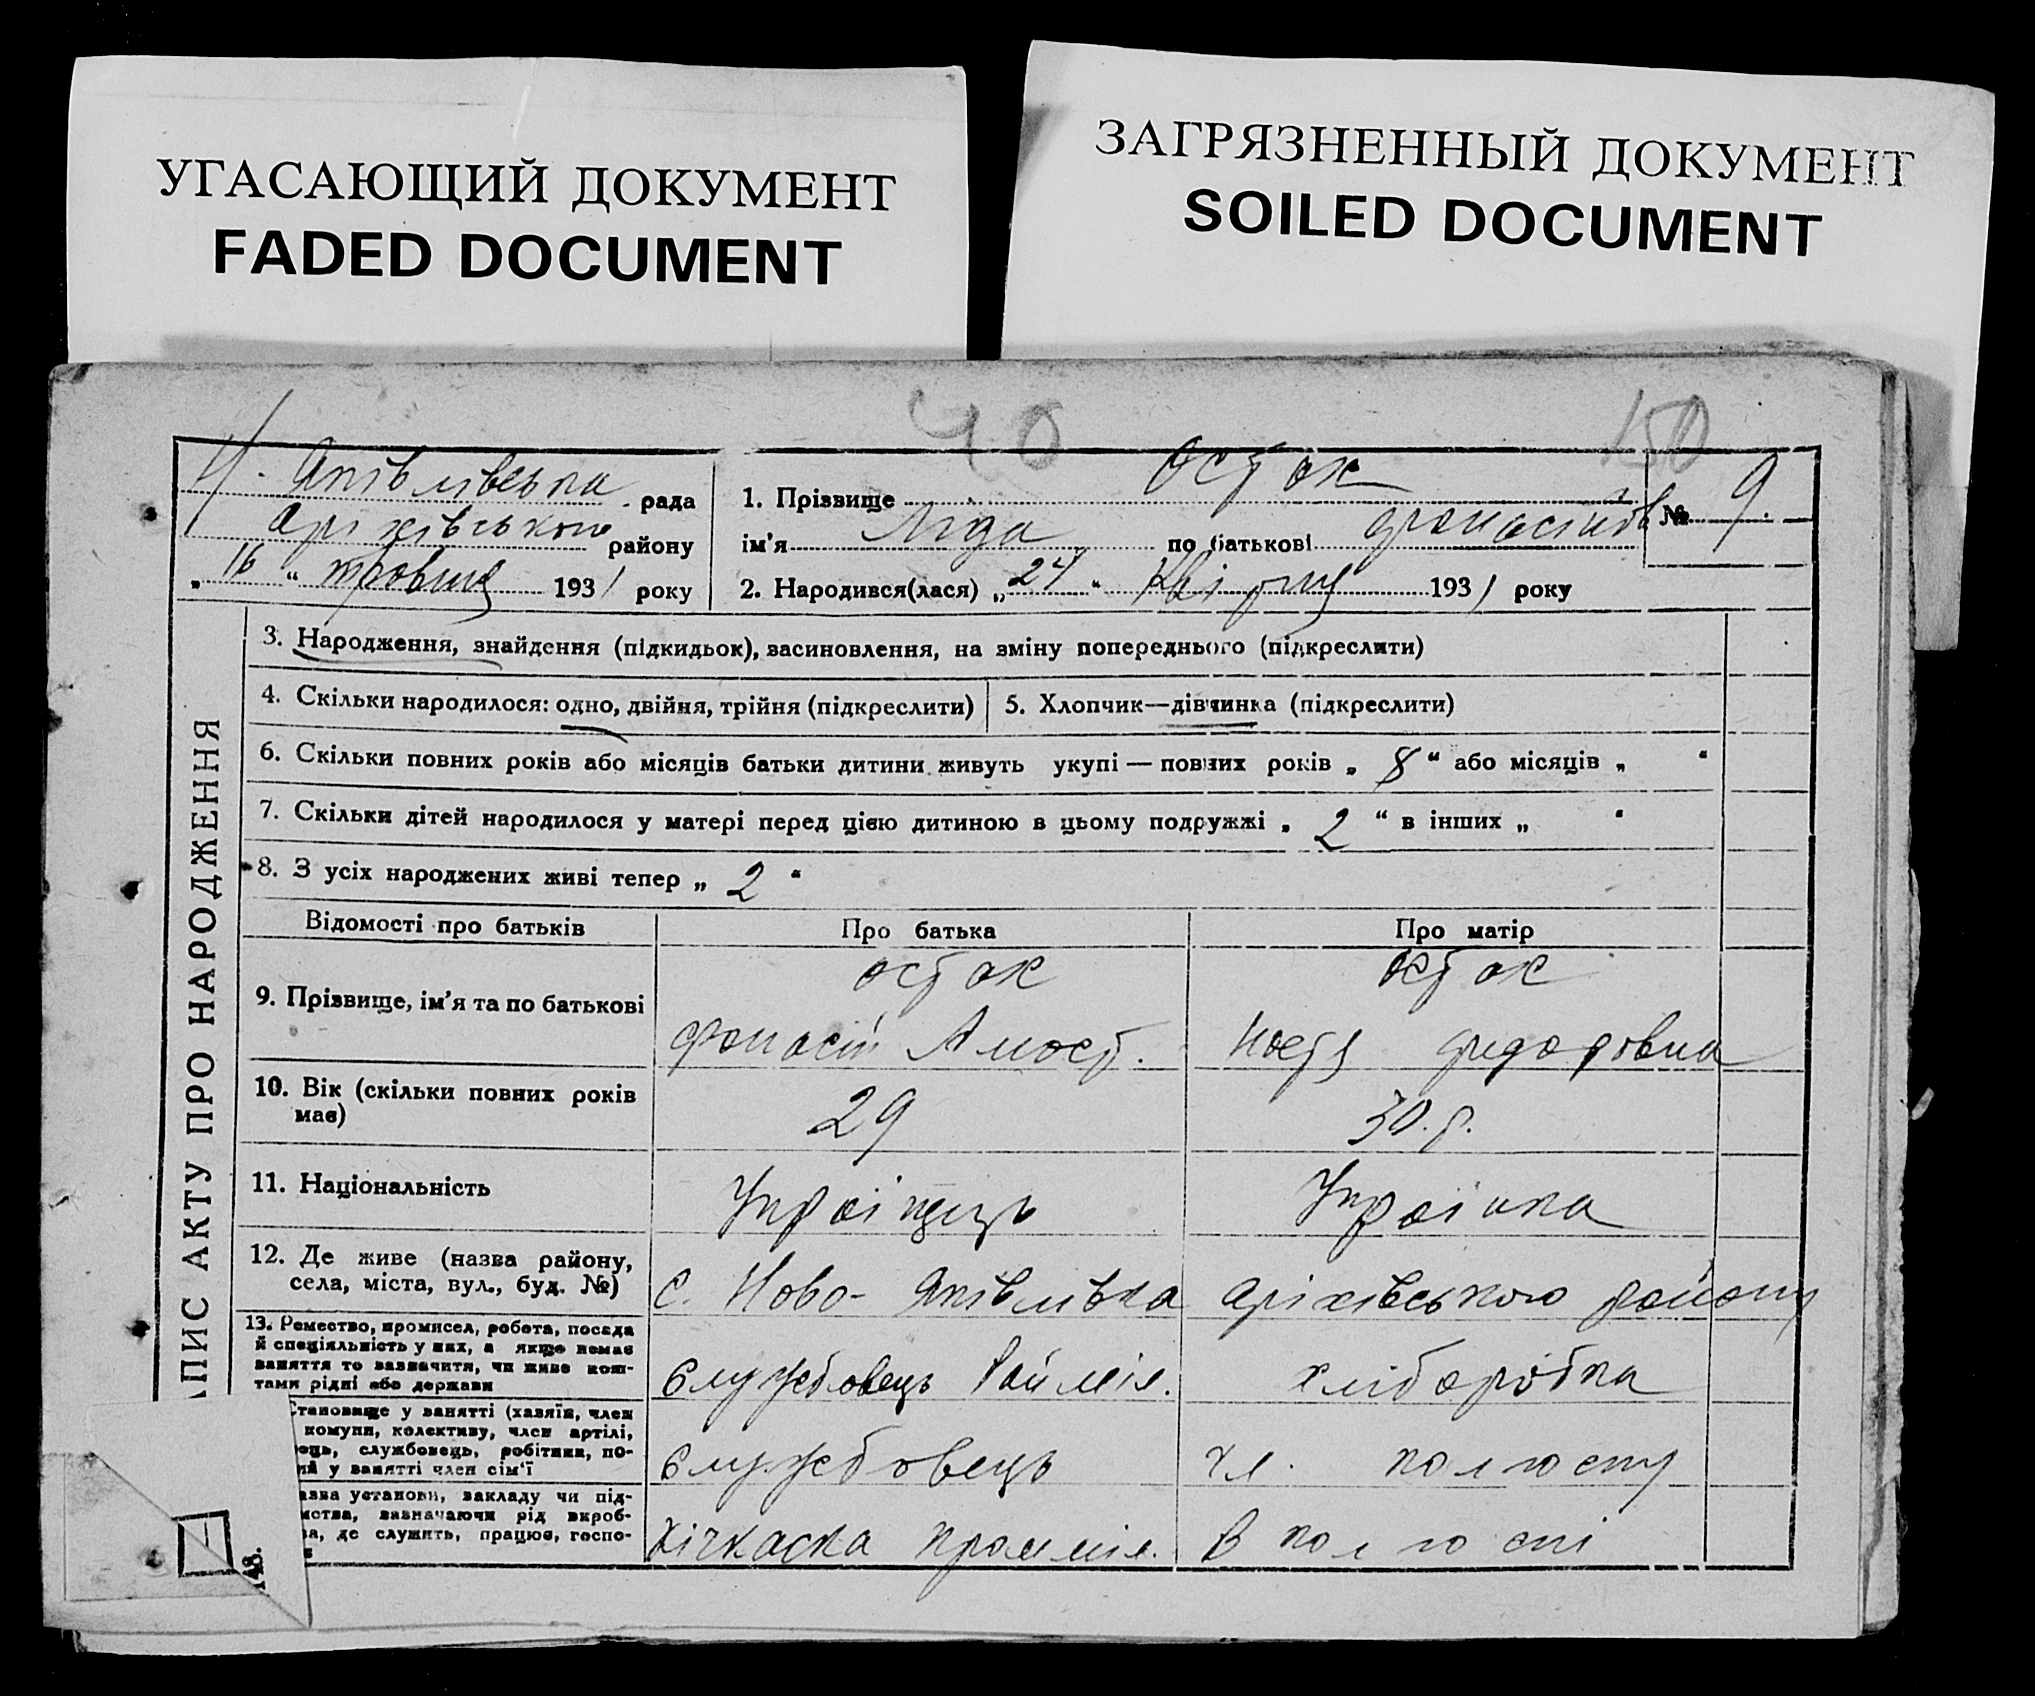 УГАСАЮЩИЙ ДОКУМЕНТ
FADED DOCUMENT
ЗАГРЯЗНЕННЫЙ ДОКУМЕНТ
SOILED DOCUMENT
40
150
Н. Яківлівська рада
Оріхівського району
„ 16 “ травня 1931 року
1. Прізвище Остак
№ 9.
ім'я Ліда по батькові
2. Народився(лася) „ 24 “ Квітня 1931 року
ЗАПИС АКТУ ПРО НАРОДЖЕННЯ
3. Народження, знайдення (підкидьок), васиновлення, на зміну попереднього (підкреслити)
4. Скільки народилося: одно, двійня, трійня (підкреслити)
5. Хлопчик—дівчинка (підкреслити)
6. Скільки повних років або місяців батьки дитини живуть укупі — повних років „ 8 “ або місяців „ “
7. Скільки дітей народилося у матері перед цією дитиною в цьому подружжі „ 2 “ в інших „ “
8. З усіх народжених живі тепер „ 2 “
Відомості про батьків
Про батька
Про матір
9. Прізвище, ім'я та по батькові
Остак
Остак
Фанасій
Настя Фидоровна
10. Вік (скільки повних років
має)
29
30.р.
11. Національність
Українець
Українка
12. Де живе (назва району,
села, міста, вул., буд. №)
С. Ново-Яківлівка Оріхівського району
13. Ремество, промисел, робота, посада
й спеціяльність у них, а якщо немає
заняття то зазначити, чи живе кош-
тами рідні або держави
Службовець Раймія.
хліборобка
Становище у занятті (хазяїн, член
комуни, колективу, член артілі,
службовець, робітник, по-
у занятті член сім'ї
Службовець
чл. колгоспу
установи, закладу чи під-
зазначаючи рід вироб-
де служить, працює, госпо-
Кічкаска
В колгоспі
148.